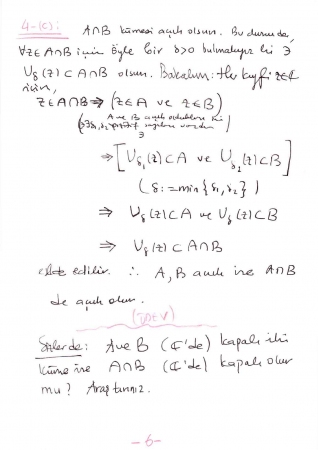 4-(c): A∩B kümesi açık olsun. Bu durumda,
∀z∈A∩B için öyle bir δ>0 bulmalıyız ki ∋
U_δ(z)⊂A∩B olsun. Bakalım: Her keyfi z∈ℂ
için,
z∈A∩B ⇒ (z∈A ve z∈B)
(A ve B açık oldukları için ∃δ₁,δ₂ pozitif sayıları vardır ∋)
⇒ [U_δ₁(z)⊂A ve U_δ₂(z)⊂B]
(δ := min{δ₁,δ₂})
⇒ U_δ(z)⊂A ve U_δ(z)⊂B
⇒ U_δ(z)⊂A∩B
elde edilir. ∴ A, B açık ise A∩B
de açık olur.
Sizlerde: A ve B (ℂ'de) kapalı iki
küme ise A∩B (ℂ'de) kapalı olur
mu? Araştırınız.
-6-